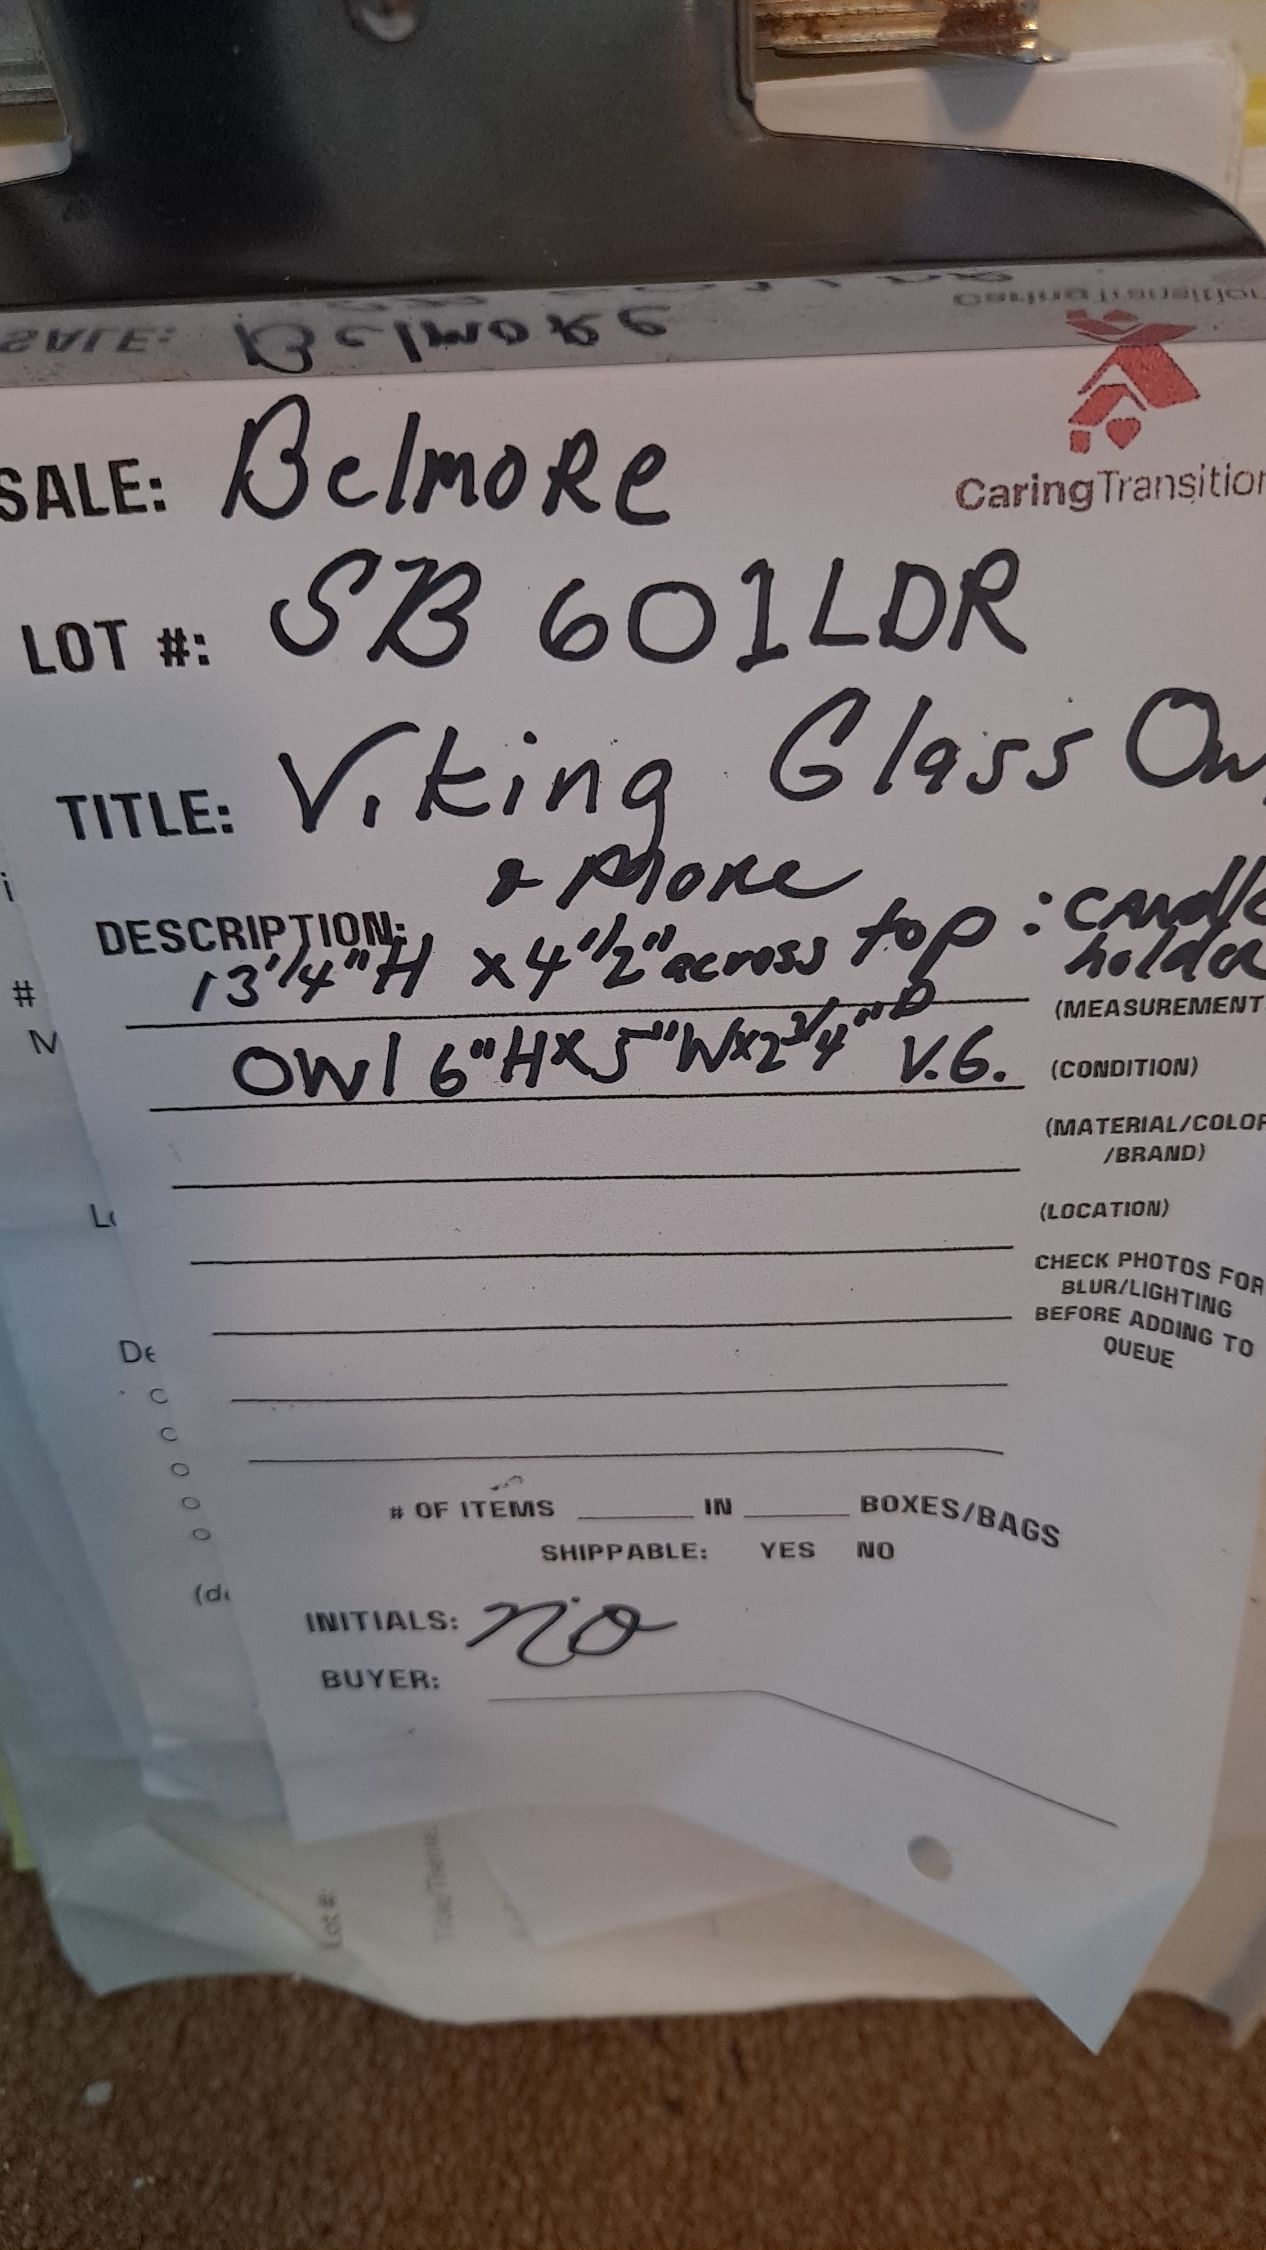 SALE: Belmore
CaringTransition
LOT #: SB 601LDR
TITLE: Viking Glass Ow
& More
DESCRIPTION:
13 1/4" H x 4 1/2" across top : candle
holder
(MEASUREMENT
OWl 6" H x 5" W x 2 3/4" D V.G.
(CONDITION)
(MATERIAL/COLOR
/BRAND)
(LOCATION)
CHECK PHOTOS FOR
BLUR/LIGHTING
BEFORE ADDING TO
QUEUE
# OF ITEMS ____ IN ____ BOXES/BAGS
SHIPPABLE: YES NO
INITIALS:
BUYER:
Lot #:
Title/Theme: